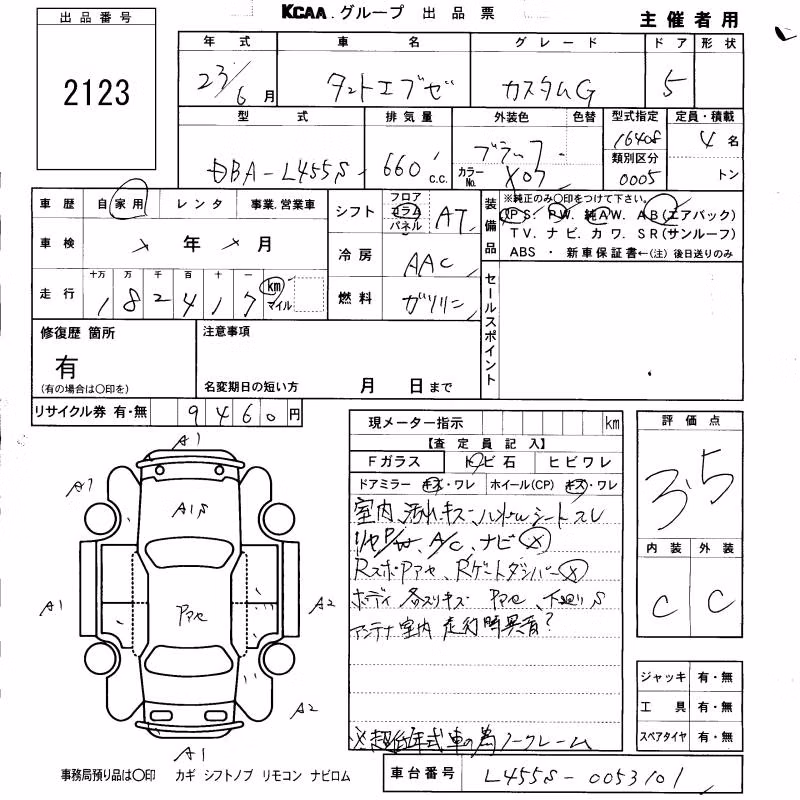 KCAA.グループ 出品票
主催者用
出品番号
2123
年式 車名 グレード ドア 形状
23/6月 タントエグゼ カスタムG 5
型式 排気量 外装色 色替 型式指定 定員・積載
DBA-L455S 660 c.c. ブラック 16408 4名
カラーNo. X07 類別区分 0005 トン
車歴 自家用 レンタ 事業.営業車
シフト フロア コラム パネル AT
装備品 ※純正のみ○印をつけて下さい。
PS. PW. 純AW. AB(エアバック)
TV. ナビ. カワ. SR(サンルーフ)
ABS ・ 新車保証書←(注) 後日送りのみ
車検 年 月
冷房 AAC
セールスポイント
十万 万 千 百 十 一
走行 182417 km マイル
燃料 ガソリン
修復歴 箇所
有
(有の場合は○印を)
注意事項
名変期日の短い方 月 日まで
リサイクル券 有・無 9460円
現メーター指示 km
評価点
3.5
【査定員記入】
Fガラス トビ石 ヒビワレ
ドアミラー キズ・ワレ ホイール(CP) キズ・ワレ
室内、汚れキズ ハンドル シートスレ
P/W、A/C、ナビ×
ボディ 各スリキズ 下廻りS
アンテナ 室内 走行時異音?
※超低年式車の為ノークレーム
内装 外装
C C
A1
A1
A1S
A1
A2
A2
A1
ジャッキ 有・無
工具 有・無
スペアタイヤ 有・無
事務局預り品は○印 カギ シフトノブ リモコン ナビロム
車台番号 L455S-0053101